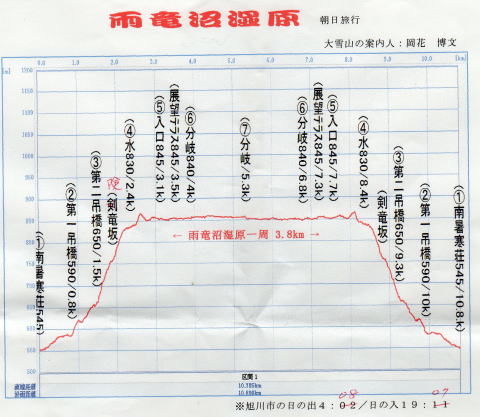 雨竜沼湿原
朝日旅行
大雪山の案内人：岡花 博文
0.0 1.0 2.0 3.0 4.0 5.0 6.0 7.0 8.0 9.0 10.0
1200
1150
1100
1050
1000
950
900
850
800
750
700
650
600
550
500
①南暑寒荘545)
②第一吊橋590/0.8k)
③第二吊橋650/1.5k)
(剣竜坂)
険
④水830/2.4k)
⑤入口845/3.1k)
(展望テラス845/3.5k)
⑥分岐840/4k)
⑦分岐/5.3k)
⑥分岐840/6.8k)
(展望テラス845/7.3k)
⑤入口845/7.7k)
④水830/8.4k)
(剣竜坂)
③第二吊橋650/9.3k)
②第一吊橋590/10k)
①南暑寒荘545/10.8k)
← 雨竜沼湿原一周 3.8km →
区間1
直線距離 10.385km
沿面距離 10.696km
08 07
※旭川市の日の出4：02／日の入19：11